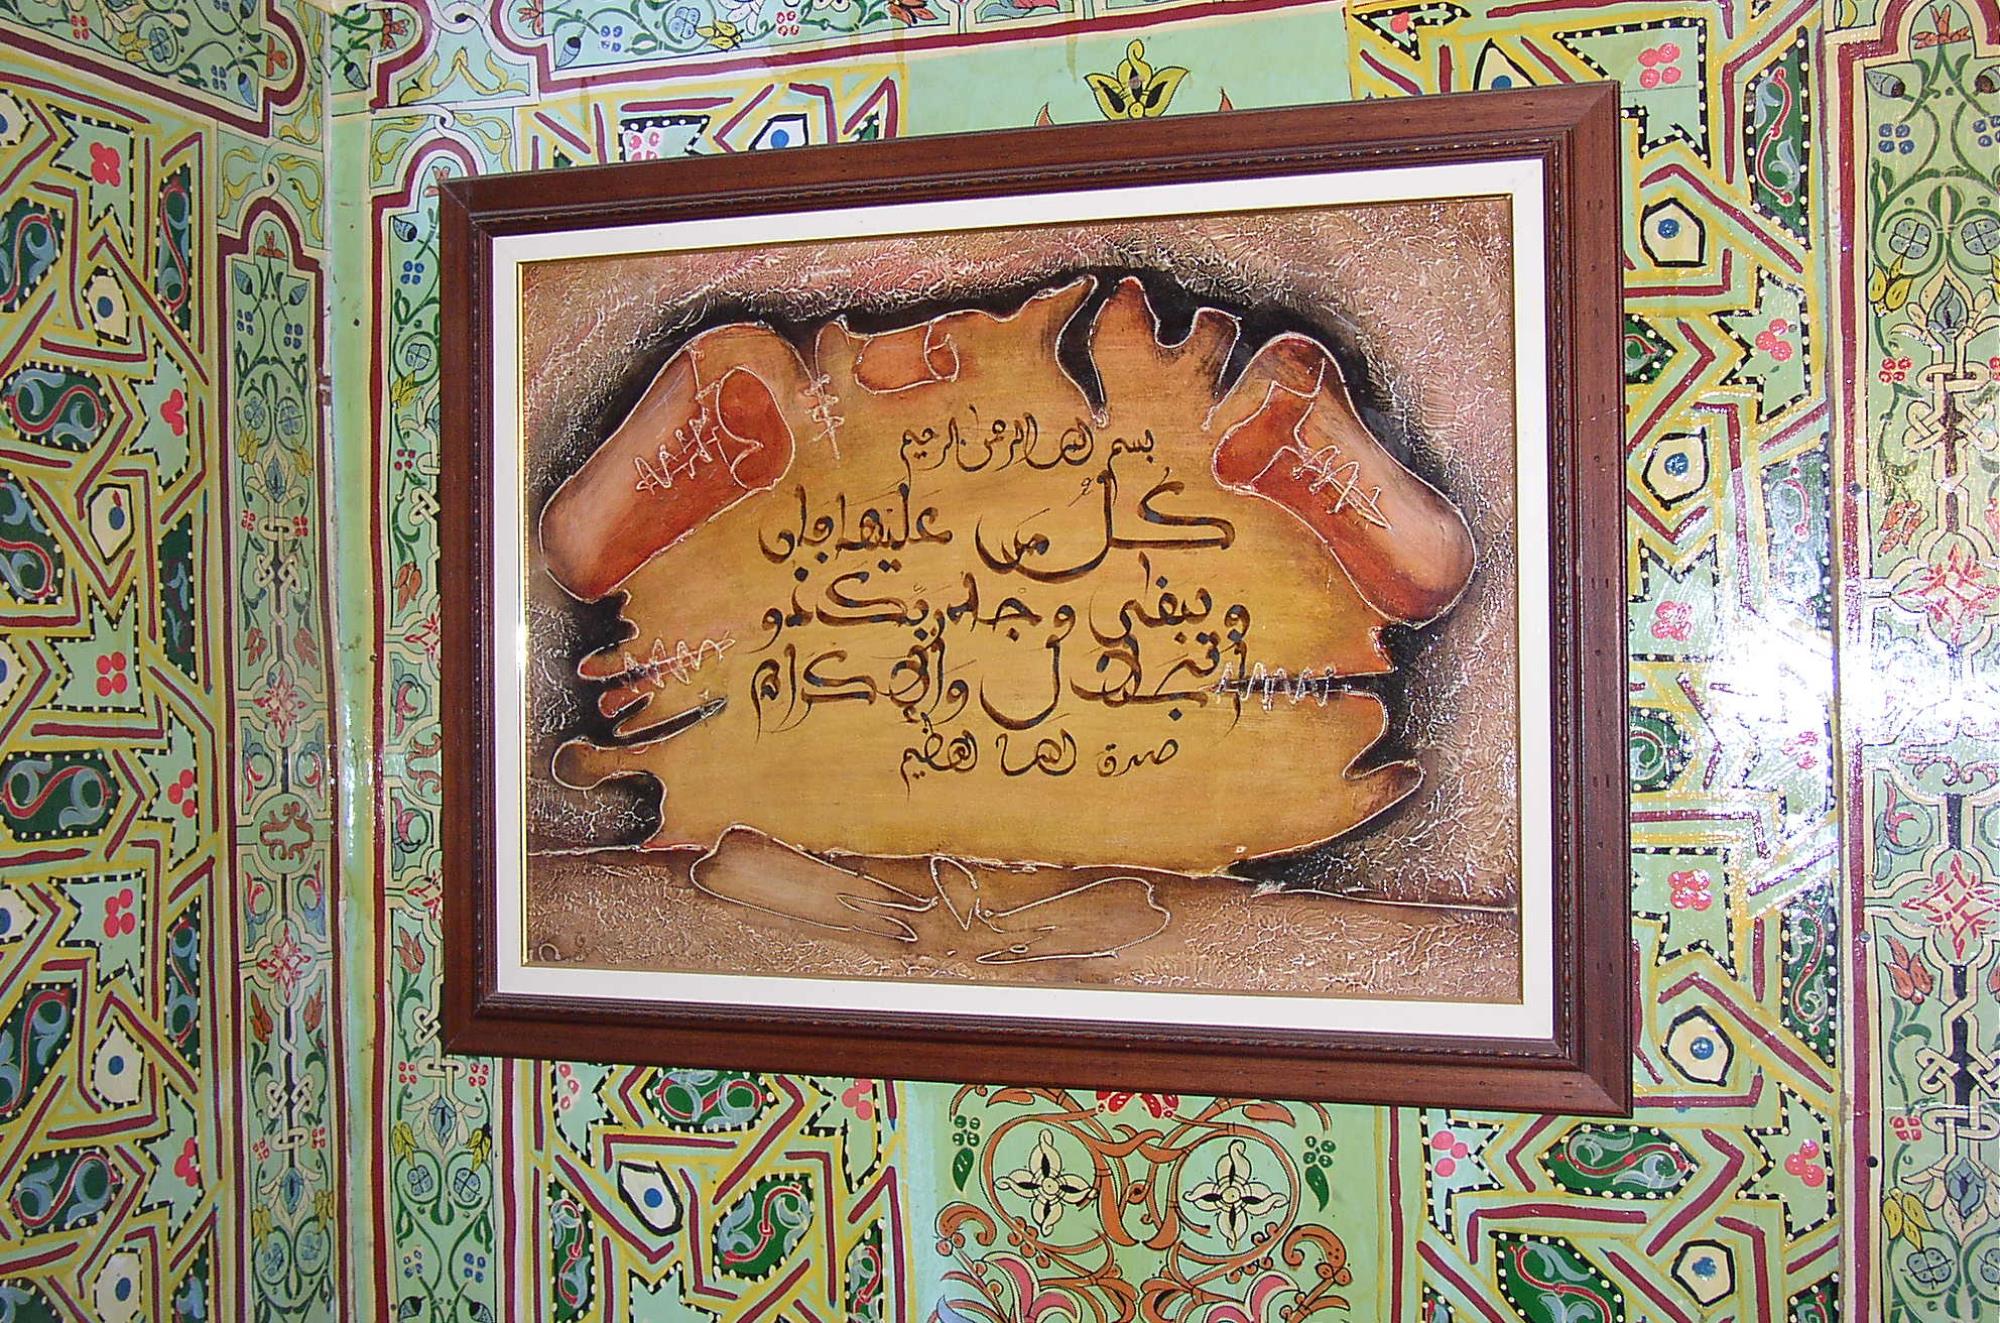 بسم الله الرحمن الرحيم
كُل من عليها فان
ويبقى وجه ربّك ذو
الجلال والإكرام
صدق الله العظيم